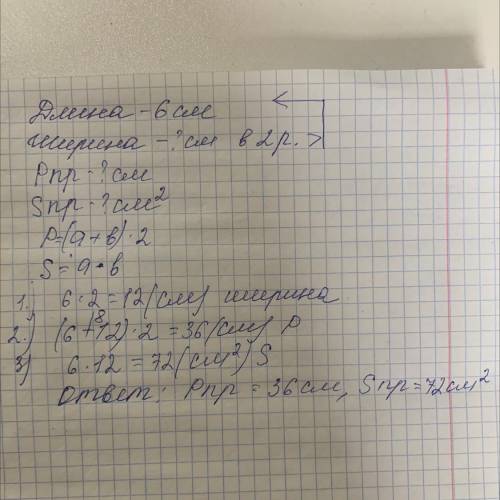 Длина - 6 см
Ширина - ? см в 2 р. >
Pпр - ? см
Sпр - ? см²
P=(a+в)·2
S=a·в
1.) 6·2=12(см) ширина
2.) (6+12)·2=36(см) P
3) 6·12=72(см²) S
Ответ: Pпр = 36 см, Sпр=72см²